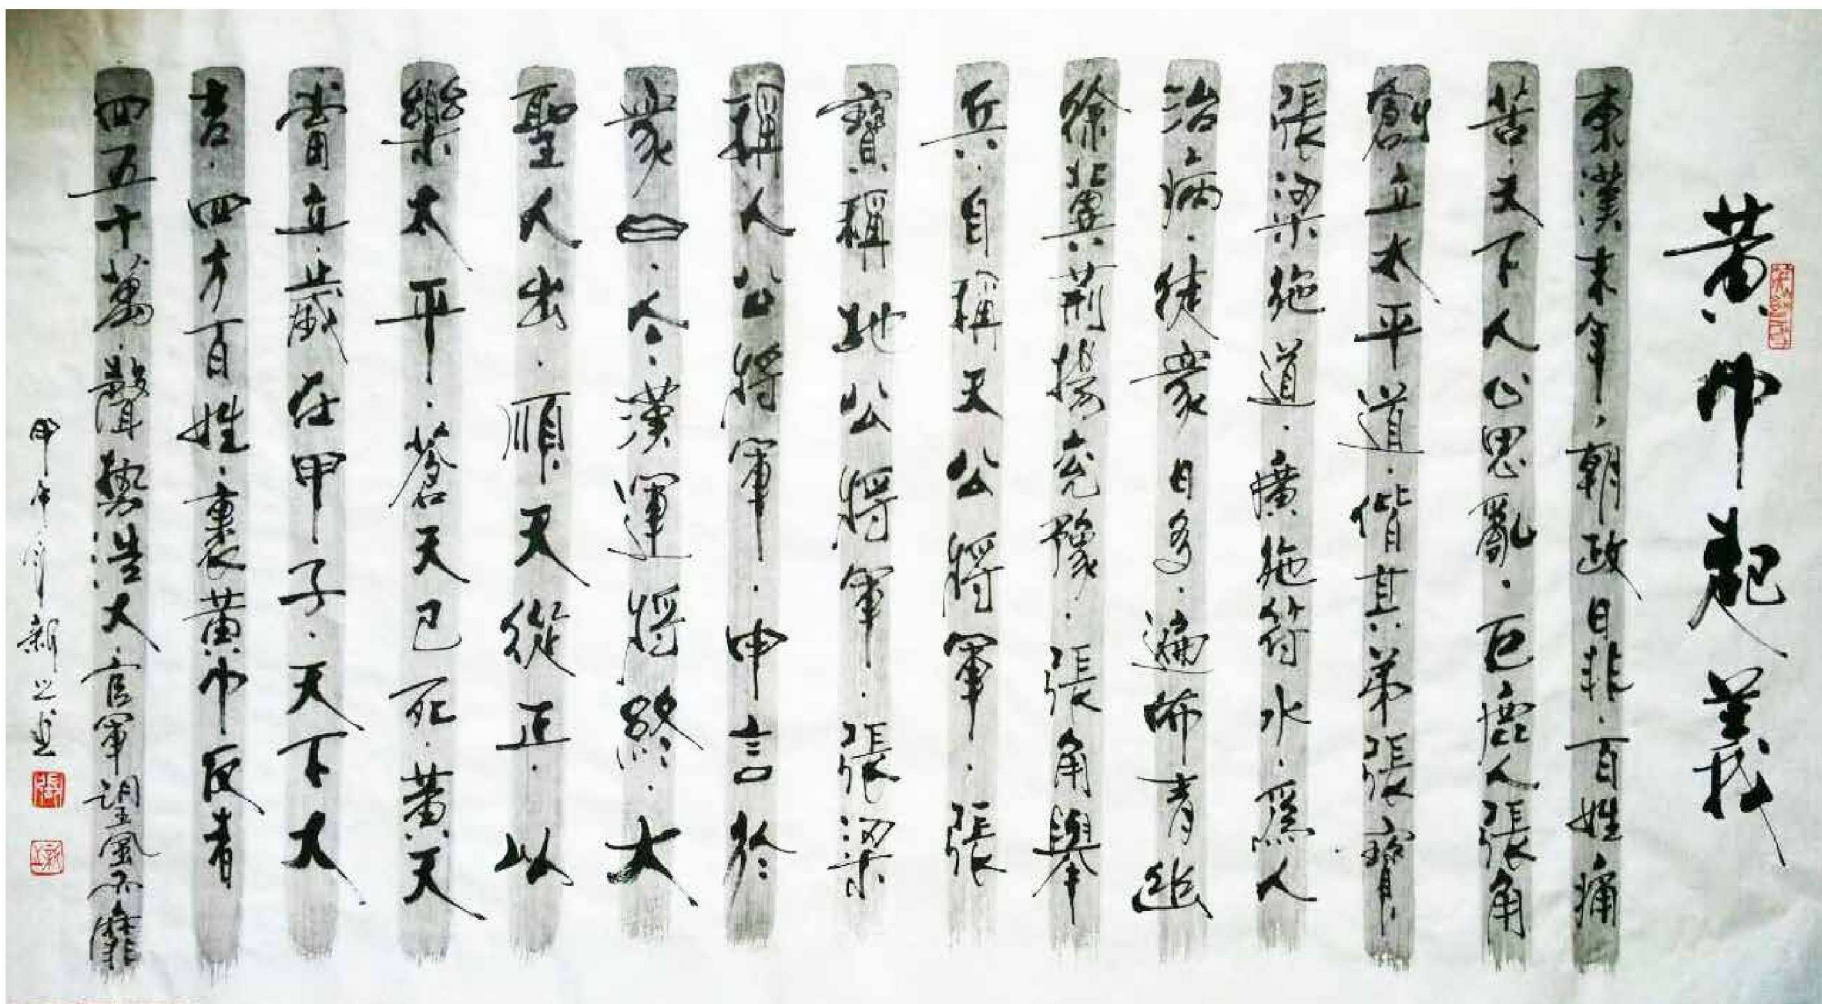 黄巾起義
東漢末年，朝政日非，百姓痛
苦，天下人心思亂，巨鹿人張角
創立太平道，偕其弟張寶，
張梁絶道，廣施符水，爲人
治病，徒衆日多，遍佈青幽
徐冀荊揚兗豫，張角舉
兵，自稱天公將軍，張
寶稱地公將軍，張梁
稱人公將軍，申言於
衆曰，今，漢運將終，大
聖人出，順天從正，以
樂太平，蒼天已死，黃天
當立，歲在甲子，天下大
吉，四方百姓，裹黃巾反者
四五十萬，聲勢浩大，官軍望風而靡
甲午 新之書
張